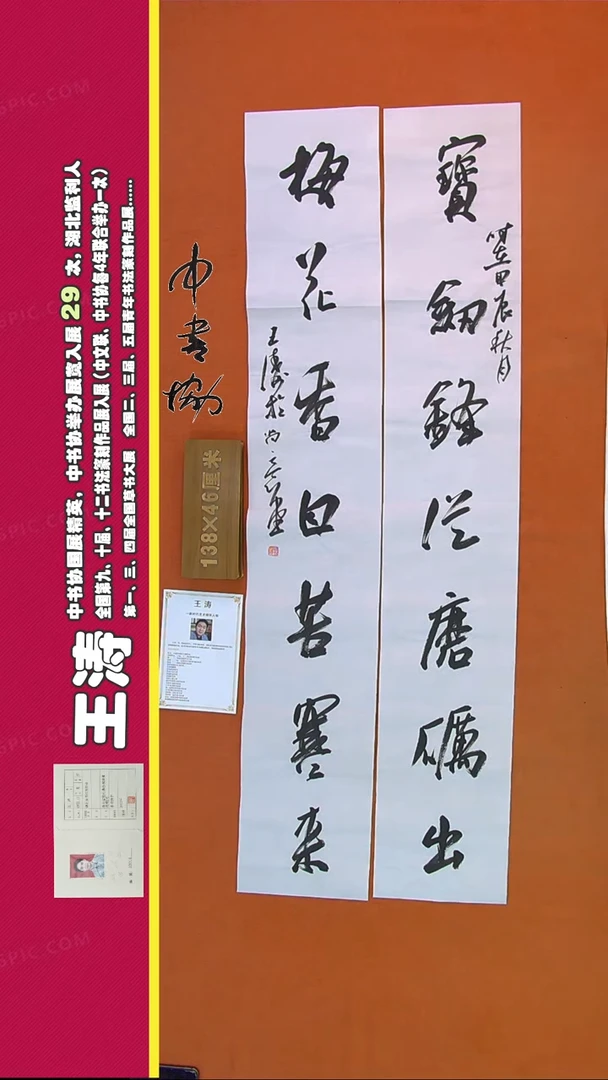 王涛
中书协国展精英，中书协举办展赛入展 29 次，湖北监利人
全国第九、十届、十二书法篆刻作品展入展（中文联、中书协每4年联合举办一次）
第一、三、四届全国草书大展 全国二、三届、五届青年书法篆刻作品展......
寶劔鋒从磨礪出
時在甲辰秋月
梅花香自苦寒来
王涛於
中书协
138×46厘米
王 涛